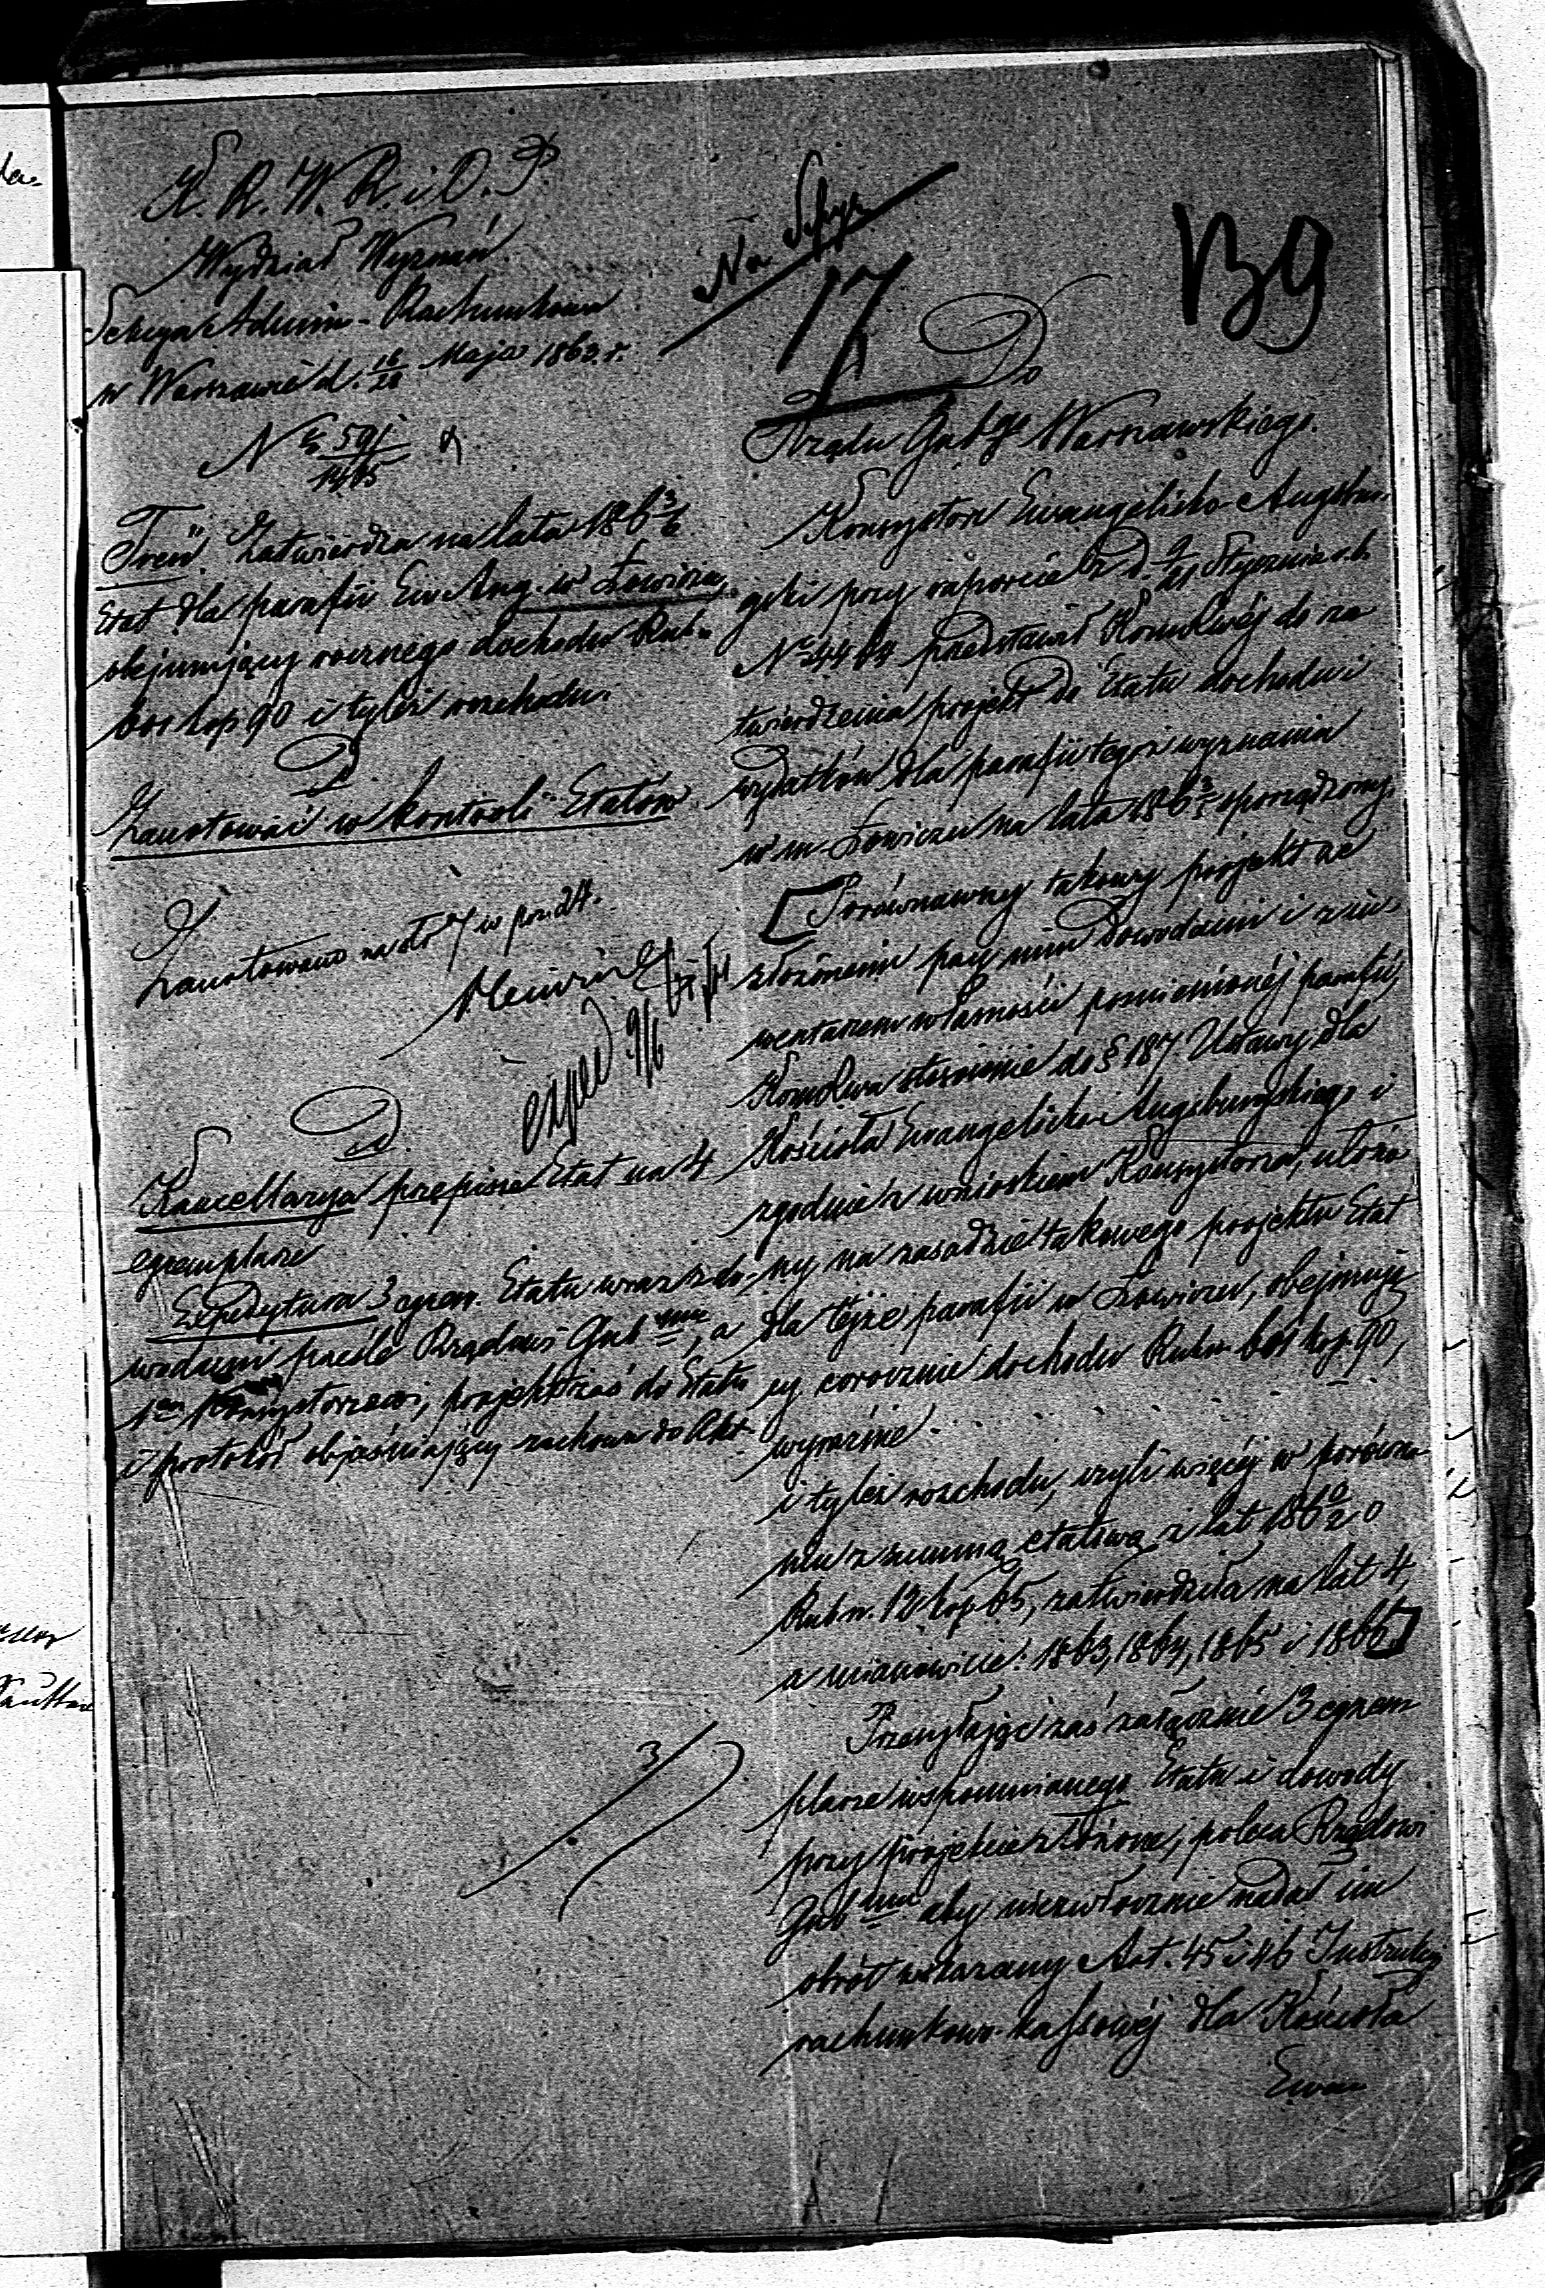 K. R. W. R. i O. P.
Wydział Wyznań.
Sekcya Admin-Rachunkowa
w Warszawie d. 16/28 Maja 1863 r.
N 591/1465
Treść. Zatwierdza na lata 186 3/6
Etat dla parafii Ew Aug. w Łowiczu,
obejmujący rocznego dochodu Rub.
601 kop 90 i tyleż rozchodu.
D
Zanotować w kontroli Etatów.
Zanotowano na str 7 w poz. 24.
exped. 9/6
Kancellarya przepisze Etat na 4
egzemplarze
Expedytura 3 egzem. Etatu wraz z do-
wodami prześle Rządowi Gub mu, a
1en Konsystorzowi, projekt zaś do Etatu
i protokół objaśniający zachowa do Akt
3
Na Sesyę
17
139
Do
Rządu Gub go Warszawskiego.
Konsystorz Ewangelicko-Augsbur-
gski przy raporcie z d. 9/21 Stycznia r. b.
N 4464 przedstawił Kom Rwéj do za
twierdzenia projekt do Etatu dochodu i
wydatków dla parafii tegoż wyznania
w m. Łowiczu na lata 186 sporządzony.
Porównawszy takowy projekt ze
złożonemi przy nim dowodami i inw-
wentarzem własności pomienionéj parafii,
Kom Rwa stosownie do § 187 Ustawy dla
Kościoła Ewangelicko-Augsburgskiego i
zgodnie z wnioskiem Konsystorza, ułożo
ny na zasadzie takowego projektu Etat
dla téjże parafii w Łowiczu, obejmują
cy corocznie dochodu Rubsr. 601 kop. 90,
wyraźnie
i tyleż rozchodu, czyli więcéj w porówna
niu z summą etatową z lat 186 0/2 o
Rub sr. 12 kop 65, zatwierdziła na lat 4,
a mianowicie: 1863, 1864, 1865 i 1866
Przesyłając zaś załącznie 3 egzem
plarze wspomnianego Etatu i dowody
przy projekcie złożone, poleca Rządowi
Gub mu aby niezwłocznie nadał im
obrót wskazany Art. 45 i 46 Instrukcyi
rachunkowo-kassowéj dla Kościoła
Ewan